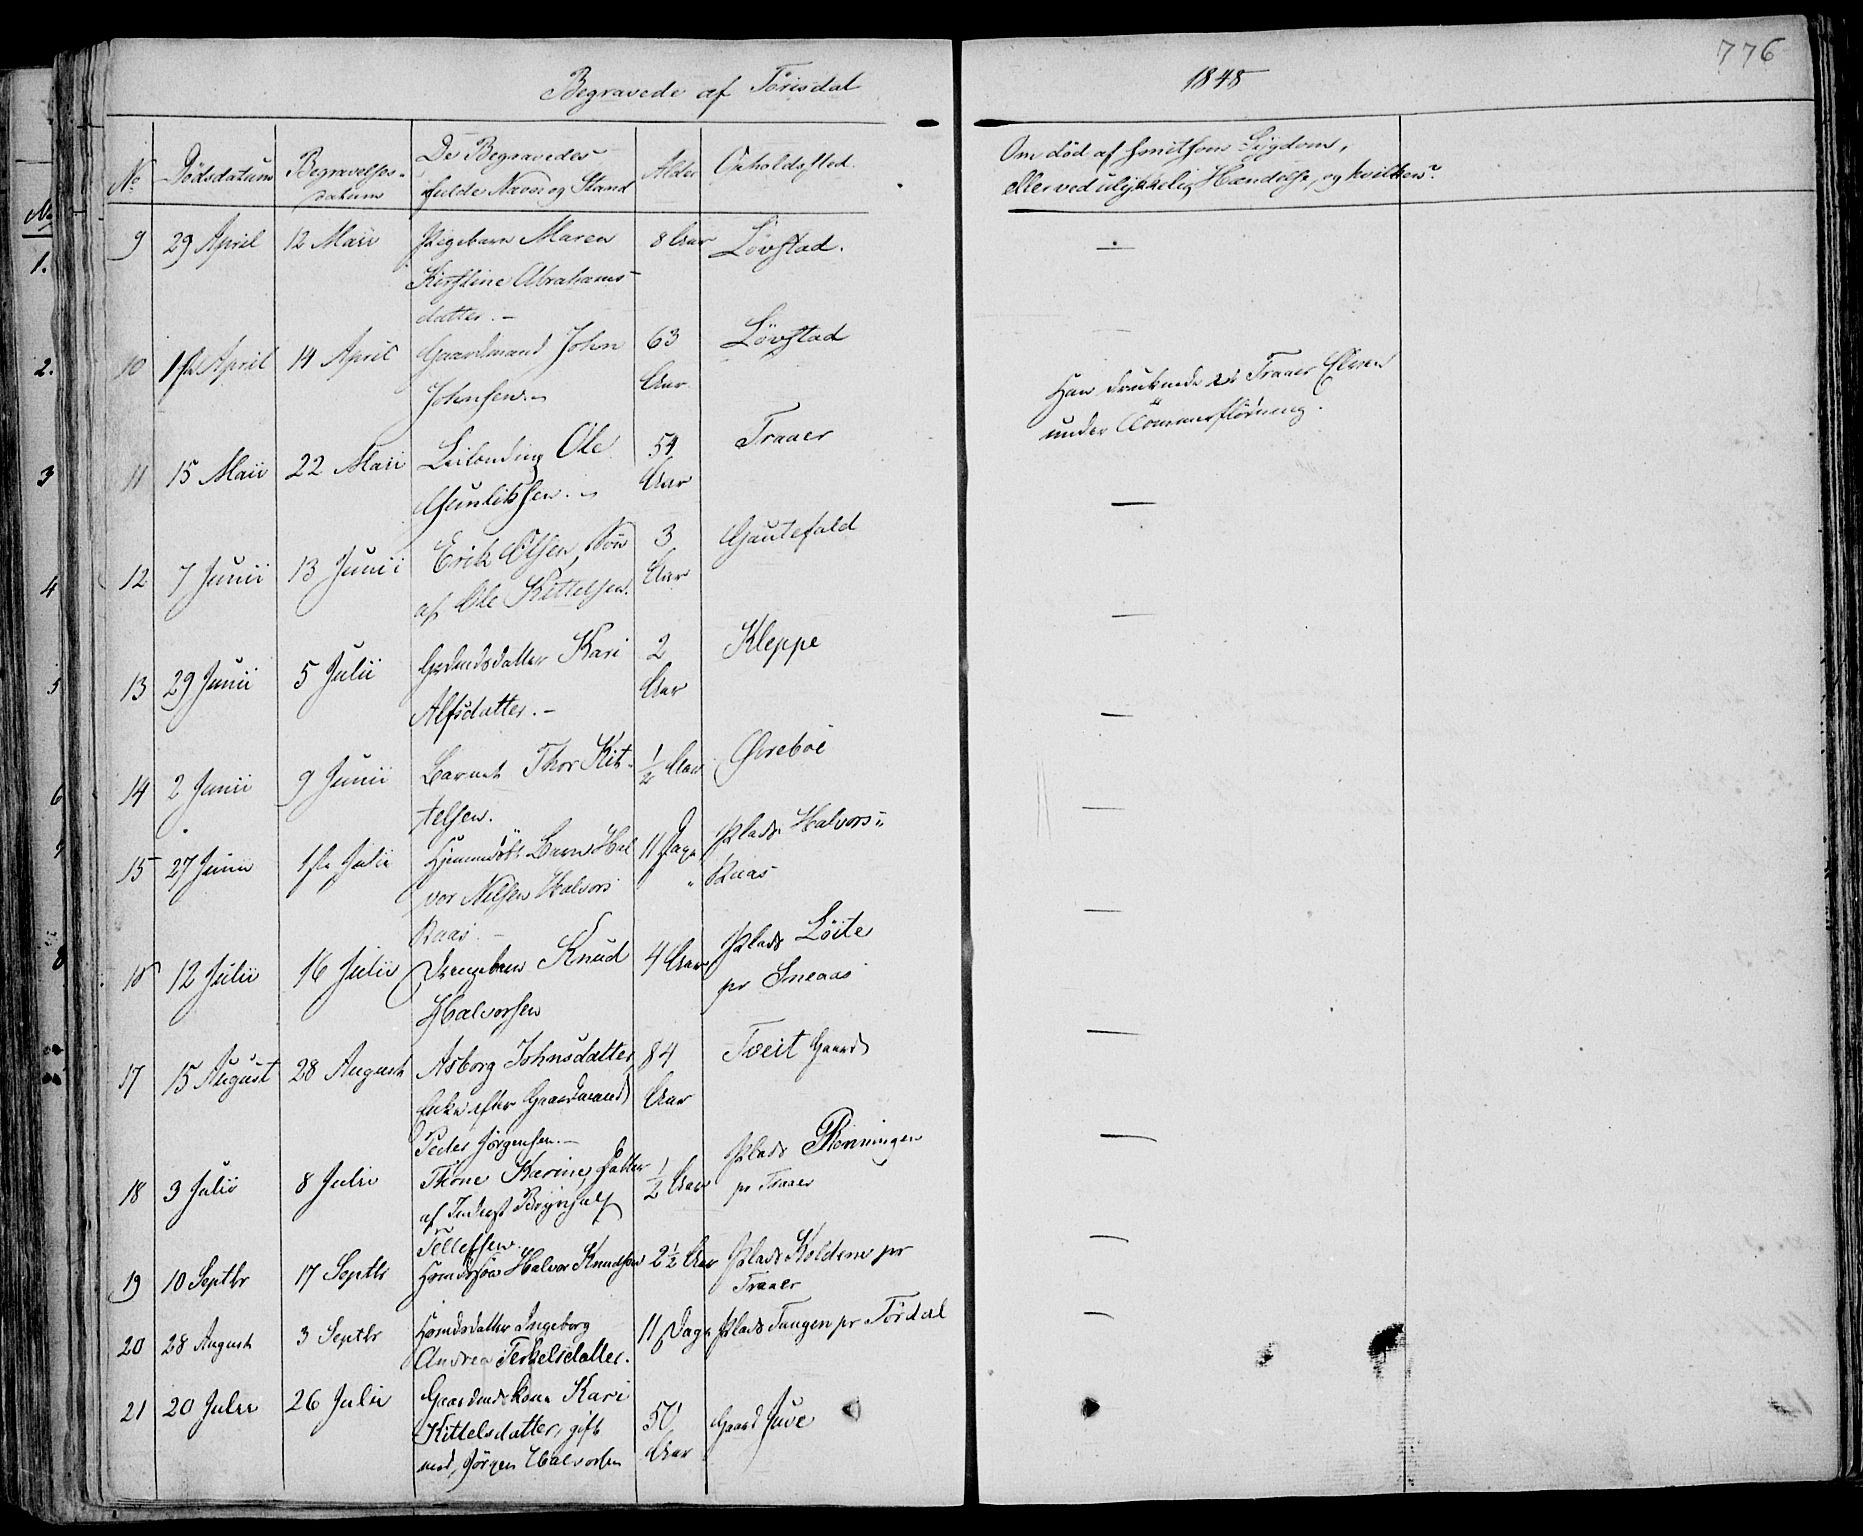 776
Begravede af Törisdal
1848
No
Dödsdatum
Begravelses-
datum
De Begravedes
fulde Navn og Stand
Alder
Opholdssted.
Om död af smitsom Sygdom,
eller ved ulykkelig Hændelse, og hvilken?
9 29 April 12 Maii Pigebarn Maren 8 Aar Lövstad. —
Kirstine Abrahams-
datter. —
10 1ste April 14 April Gaardmand John 63 Lövstad
Johnsen. Aar
Han druknede i Traaer Elven
under Tömmerflödning.
11 15 Maii 22 Maii Leilænding Ole 54 Traaer
Gunliksen. Aar
12 7 Junii 13 Junii Erik Olsen, Sön 3 Gautefald —
af Ole Kittelsen. Aar
13 29 Junii 5 Julii Grdmdsdatter Kari 2 Kleppe —
Alfsdatter. — Aar
14 2 Junii 9 Junii Barnet Thor Kit- ½ Aar Öreböe —
telsen.
15 27 Junii 1ste Julii Hjemmedöbt Barn Hal 11 Dage Plads Halvors-
vor Nilsen Halvors Raas —
Raas. —
16 12 Julii 16 Julii Drengebarn Knud 4 Aar Plads Löite —
Halvorsen pr Sneaas
17 15 August 28 August Asborg Johnsdatter, 84 Tveit Gaard —
Enke efter Gaardmand Aar
Peder Jörgensen. —
18 3 Julii 8 Julii Thone Karine, Datter ½ Aar Plads Rönningen —
af Inderst Brynjulf pr Traaer
Tellefsen.
19 10 Septbr 17 Septbr Hsmdssön Halvor Knudsen 2½ Aar Plads Kolderne pr —
Traaer
20 28 August 3 Septbr Hsmdsdatter Ingeborg 11 Dage Plads Tangen pr Tördal —
Andrea Terkelsdatter.
21 20 Julii 26 Julii Gaardmdskone Kari 50 Gaard Juve
Kittelsdatter, gift Aar
med Jörgen Halvorsen